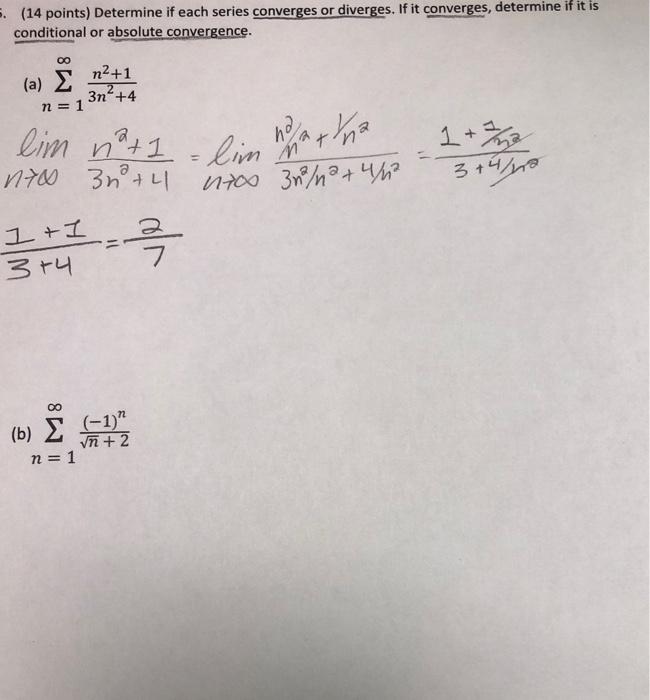 5. (14 points) Determine if each series converges or diverges. If it converges, determine if it is
conditional or absolute convergence.
(a) ∞ Σ n = 1 n²+1 / 3n²+4
lim n→∞ n²+1 / 3n²+4 = lim n→∞ n²/n² + 1/n² / 3n²/n² + 4/n² = 1 + 1/n² / 3 + 4/n²
1 + 1 / 3+4 = 2 / 7
(b) ∞ Σ n = 1 (−1)ⁿ / √n + 2